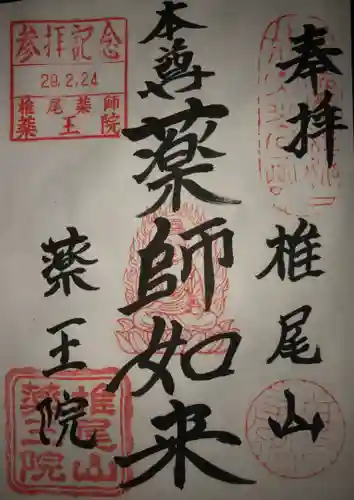 奉拝
椎尾山
本尊
薬師如来
薬王院
参拝記念
29.2.24
椎尾薬師
薬王院
椎尾山
薬王院